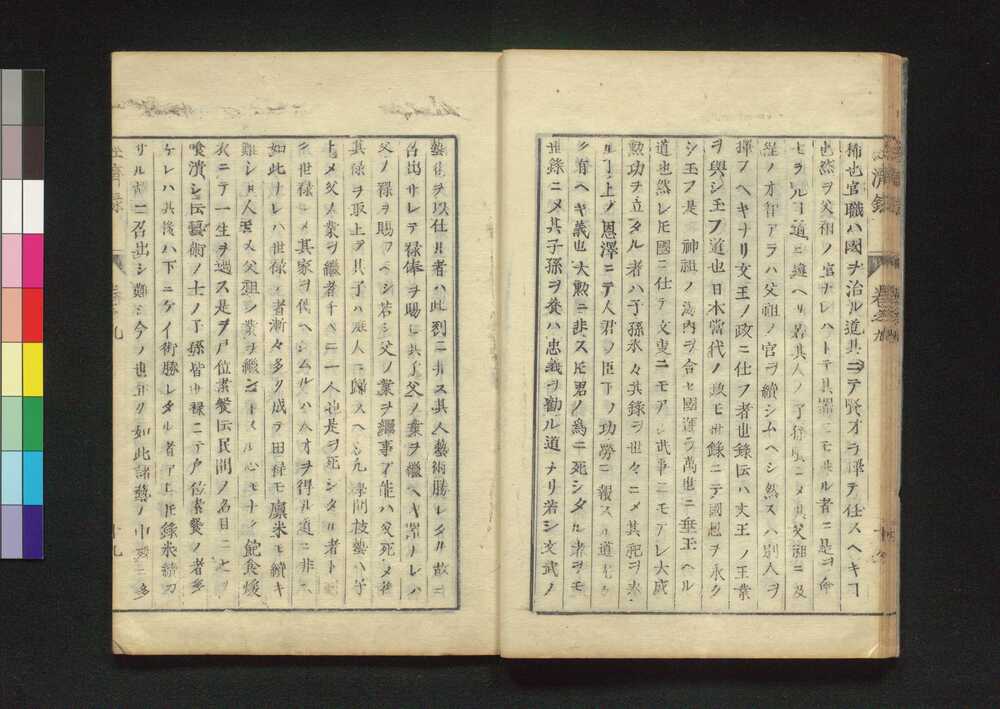 柿也官職ハ國ヲ治ル道具ニテ賢才ヲ擇テ仕スヘキヿ
也然ヲ父祖ノ官ナレハトテ其器ニモ非ル者ニ是ヲ命
セラルヽヿ道ニ違ヘリ若其人ノ子孫賢ニメ其父祖ニ及
程ノ才智アラハ父祖ノ官ヲ續シムヘシ然スハ別人ヲ
擇フヘキナリ文王ノ政ニ仕フ者世錄伝ハ文王ノ王業
ヲ興シ玉フ道也日本當代ノ政モ世錄ニテ國恩ヲ永ク
シ玉フ是神祖ノ海内ヲ合セ國運ヲ萬世ニ垂玉ヘル
道也然レ𪜈國ニ仕テ文吏ニモアレ武事ニモアレ大成
勲功ヲ立タル者ハ子孫永々其錄ヲ世々ニメ其祀ヲ奉
ル丁上ノ恩澤ニテ人君ノ臣下ノ功勞ニ報スル道
有ヘキ義也大勲ニ非ス𪜈君ノ為ニ死シタル者ヲモ
世錄ニメ其子孫ヲ養ハ忠義ヲ勸ル道ナリ若シ文武ノ
藝術ヲ以仕ル者ハ此列ニ非ス其人藝術勝レタル故ニ
召出サレテ禄俸ヲ賜シ共子父ノ業ヲ繼ヘキ器ナレハ
父ノ禄ヲ賜フヘシ若シ父ノ業ヲ繼事不能ハ父死メ後
其禄ヲ取上テ其子ハ庶人ニ歸スヘシ凡學問技藝ハ子
トメ父ノ業ヲ繼者千人ニ一人也是ヲ死シタル者ト
世禄ニメ其家ヲ伝ヘシムルハ人オヲ得ル道ニ非ス
如此ナレハ世禄ノ者漸々多ク成テ田祥モ廩米モ續キ
難シ其人モ父祖ノ業ヲ繼ントスル心モナク飽食煖
衣ニテ一生ヲ過ス是ヲ尸位素餐伝民間ノ名目ニ
喰潰シ伝藝術ノ士ノ子孫皆世禄ニテ尸位素餐ノ者多
ケレハ其後ハ下ニケイ術勝レタル者アレ𪜈錄米續カ
サル故ニ召出シ難シ今ノ世正ク如此諸藝ノ中殊ニ多
經濟錄 卷之九 十九